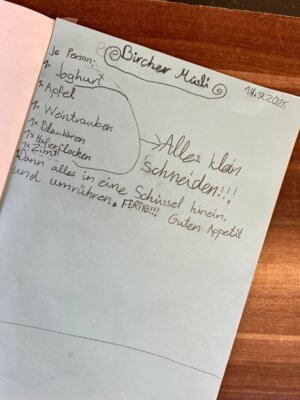 Bircher Müsli
Je Person:
1x Joghurt
1x Apfel
1x Weintrauben
1x Blaubären
1x Haferflocken
1x Zimt
Alles klein
Schneiden!!!
Dann alles in eine Schüssel hinein,
und umrühren. FERTIG!!! Guten Appetit